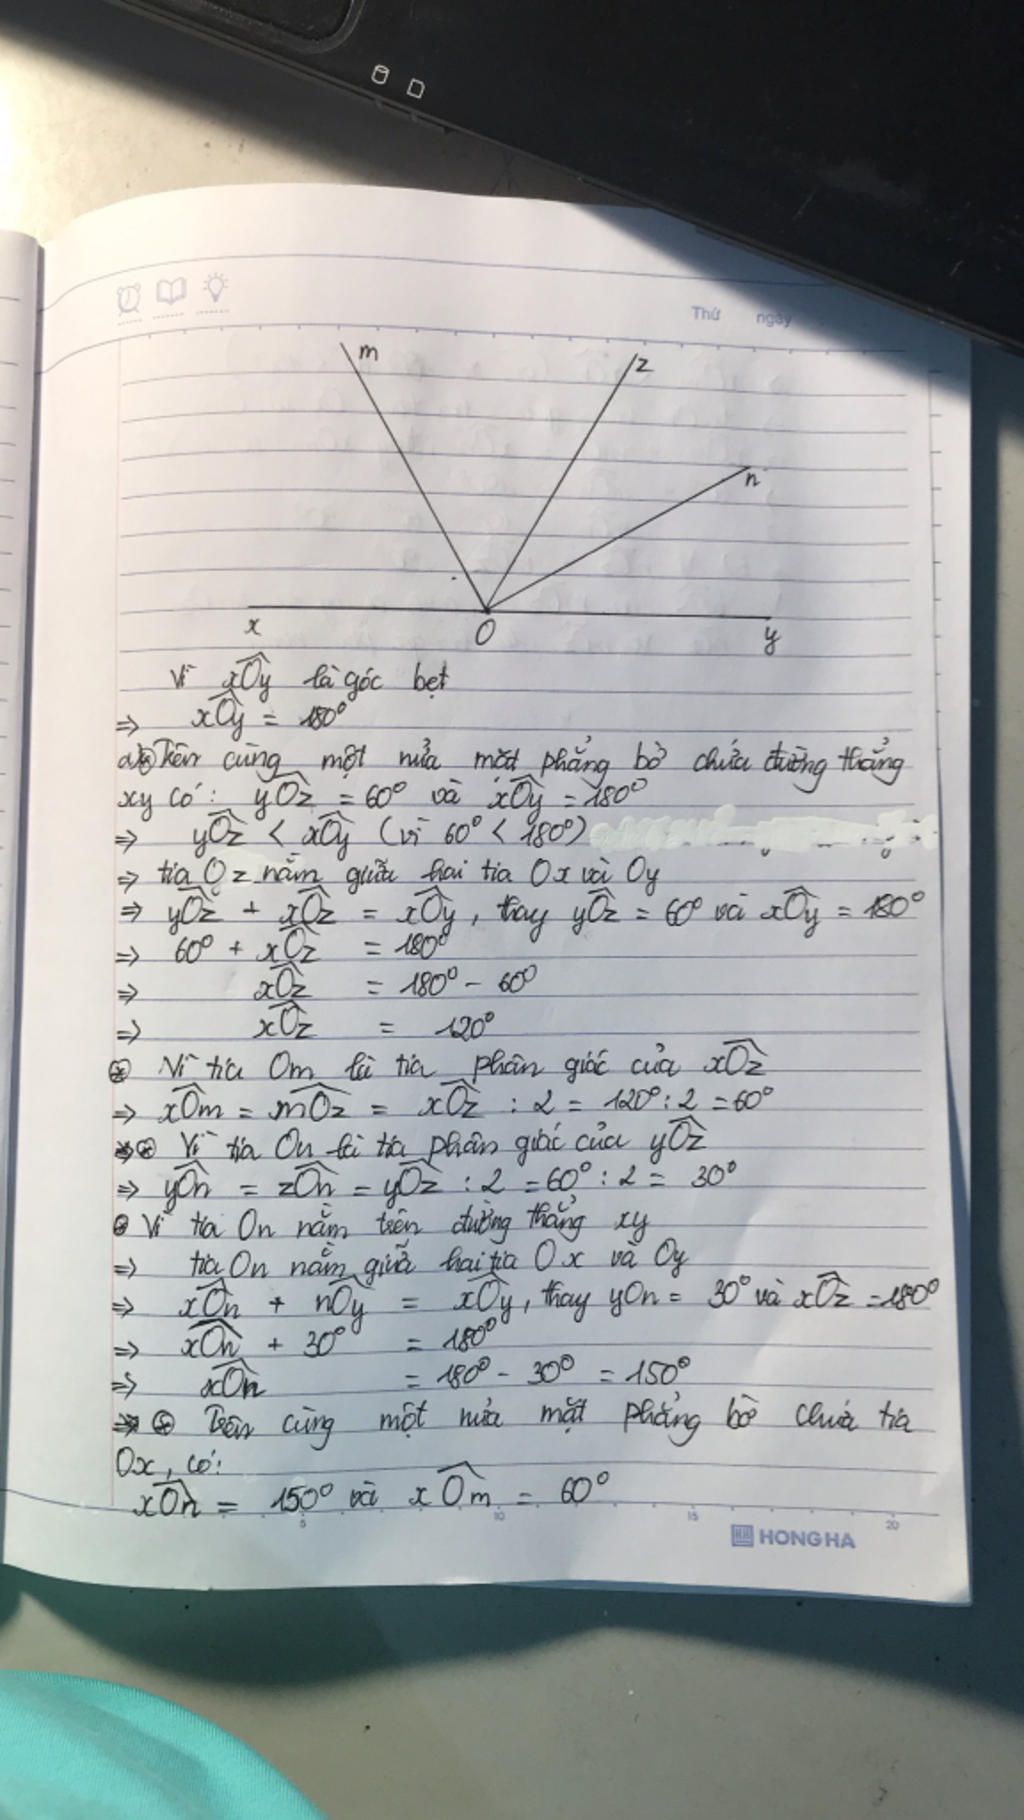 Thứ ngày
m
z
n
x
O
y
Vì xOy là góc bẹt
⇒ xOy = 180°
a) Trên cùng một nửa mặt phẳng bờ chứa đường thẳng
xy có: yOz = 60° và xOy = 180°
⇒ yOz < xOy (vì 60° < 180°)
⇒ tia Oz nằm giữa hai tia Ox và Oy
⇒ yOz + xOz = xOy, thay yOz = 60° và xOy = 180°
⇒ 60° + xOz = 180°
⇒ xOz = 180° - 60°
⇒ xOz = 120°
Vì tia Om là tia phân giác của xOz
⇒ xOm = mOz = xOz : 2 = 120° : 2 = 60°
Vì tia On là tia phân giác của yOz
⇒ yOn = zOn = yOz : 2 = 60° : 2 = 30°
Vì tia On nằm trên đường thẳng xy
⇒ tia On nằm giữa hai tia Ox và Oy
⇒ xOn + nOy = xOy, thay yOn = 30° và xOz = 180°
⇒ xOn + 30° = 180°
⇒ xOn = 180° - 30° = 150°
Trên cùng một nửa mặt phẳng bờ chứa tia
Ox, có:
xOn = 150° và xOm = 60°
5 10 15 20
HONG HA